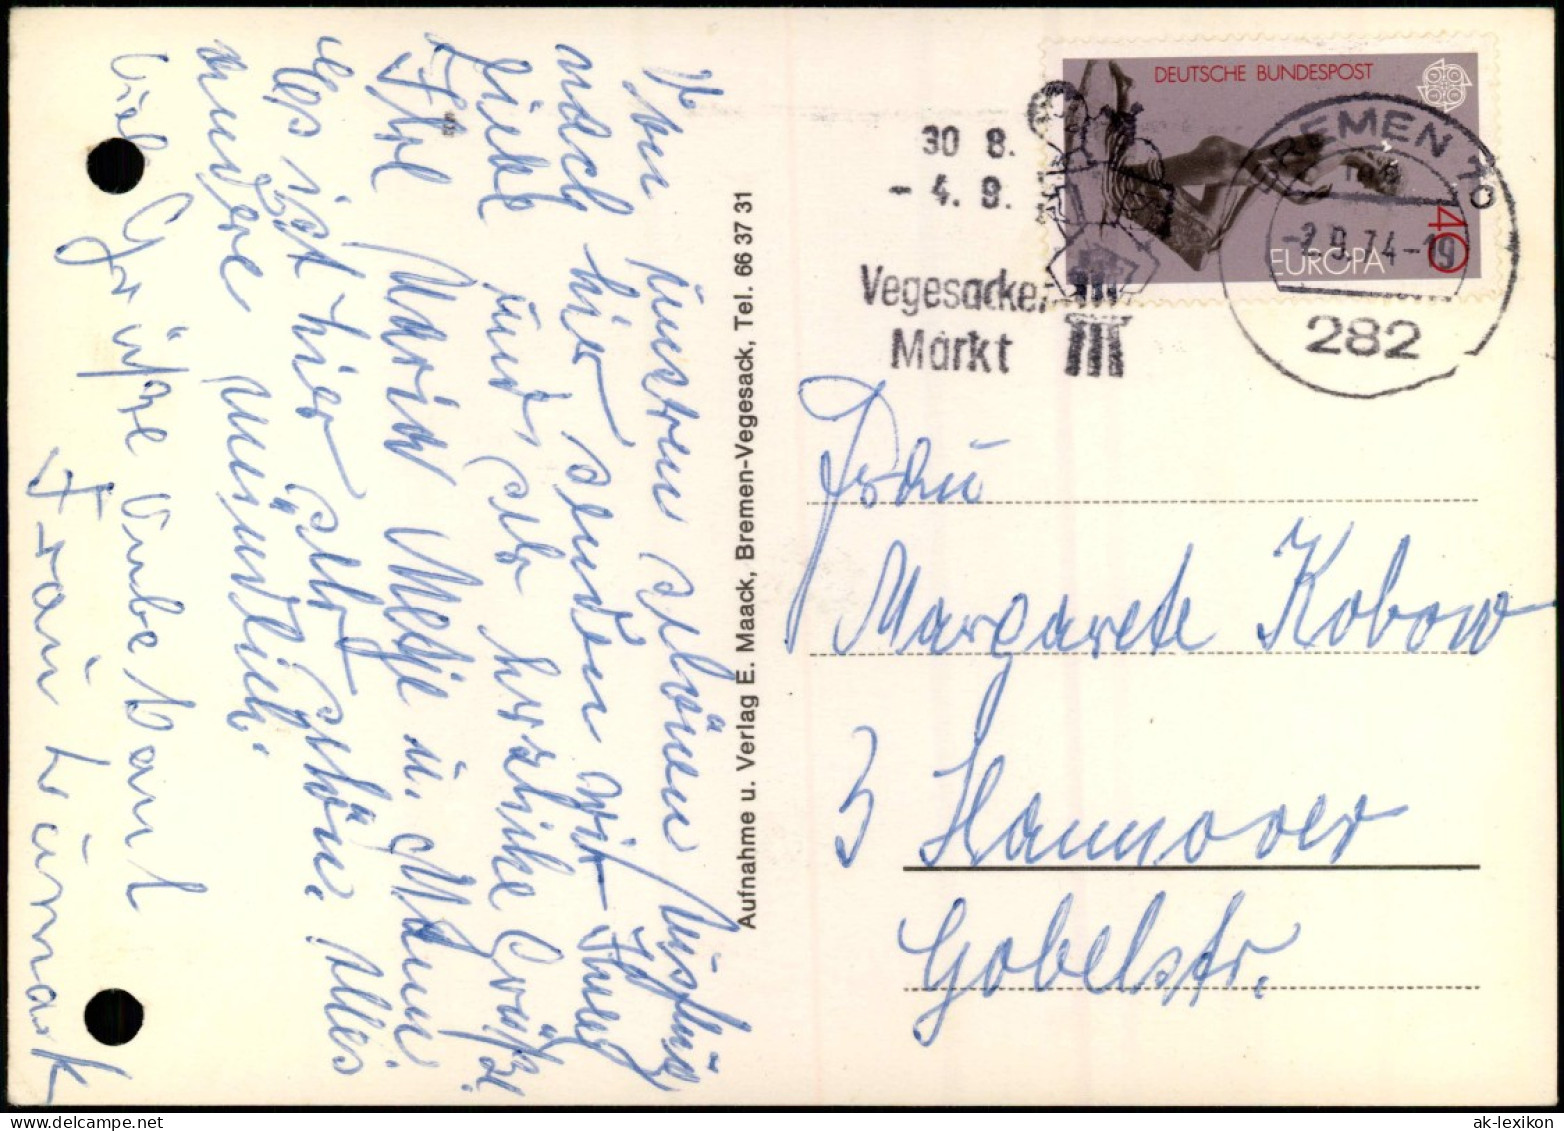 DEUTSCHE BUNDESPOST
EUROPA
40
30 8.
- 4. 9.
Vegesacker
Markt
BREMEN 70
-2.9.74-19
282
Von unseren schönen Ausflug
nach hier senden wir Ihnen
liebe und sehr herzliche Grüße
Ihre
Es ist hier sehr schön. Alles
andere mündlich.
Viele Grüße Unbekannt
Frau
Aufnahme u. Verlag E. Maack, Bremen-Vegesack, Tel. 66 37 31
Frau
Margarete Kobow
3 Hannover
Göbelstr.
ak-lexikon